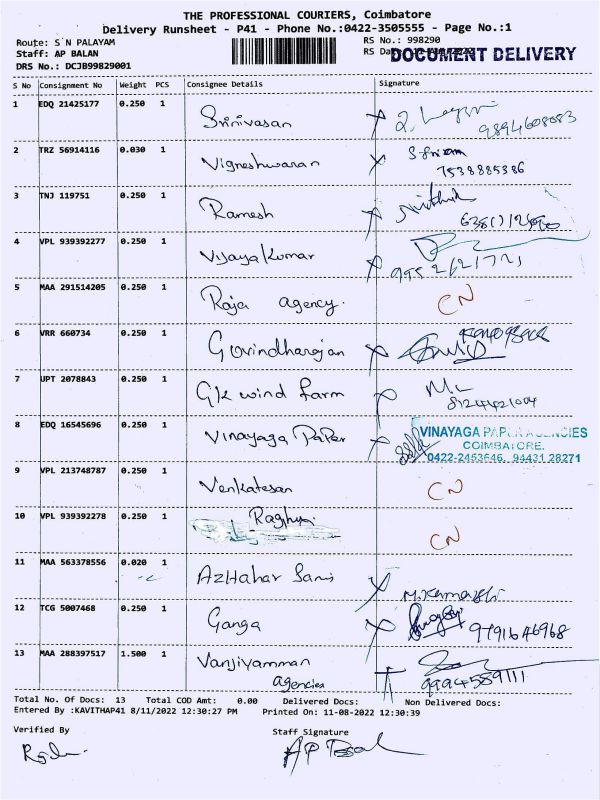 THE PROFESSIONAL COURIERS, Coimbatore
Delivery Runsheet - P41 - Phone No.:0422-3505555 - Page No.:1
Route: S N PALAYAM RS No.: 998290
Staff: AP BALAN RS Da DOCUMENT DELIVERY
DRS No.: DCJB99829001
S No Consignment No Weight PCS Consignee Details Signature
1 EDQ 21425177 0.250 1 Srinivasan
9894608083
2 TRZ 56914116 0.030 1 Vigneshwaran Sriram
7538885386
3 TNJ 119751 0.250 1 Ramesh
4 VPL 939392277 0.250 1 Vijayakumar
5 MAA 291514205 0.250 1 Raja agency. CN
6 VRR 660734 0.250 1 Govindharajan
7 UPT 2078843 0.250 1 GK wind farm
8124421004
8 EDQ 16545696 0.250 1 Vinayaga Paper VINAYAGA PAPER AGENCIES
COIMBATORE.
0422-2453646, 94431 28271
9 VPL 213748787 0.250 1 Venkatesan CN
10 VPL 939392278 0.250 1 Raghu CN
11 MAA 563378556 0.020 1 Azhahar Sami
12 TCG 5007468 0.250 1 Ganga 9791646968
13 MAA 288397517 1.500 1 Vanjiyamman
agencies 9994589111
Total No. Of Docs: 13 Total COD Amt: 0.00 Delivered Docs: Non Delivered Docs:
Entered By :KAVITHAP41 8/11/2022 12:30:27 PM Printed On: 11-08-2022 12:30:39
Verified By Staff Signature